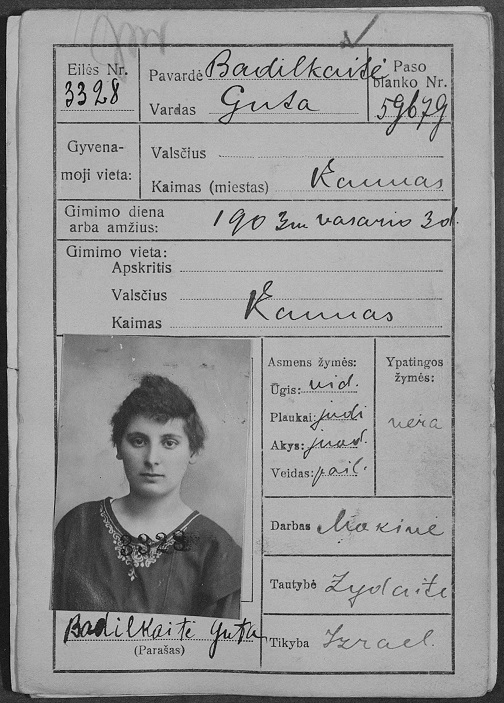 Eilės Nr.
3328
Pavardė Badilkaitė
Vardas Guta
Paso
blanko Nr.
59679
Gyvena-
moji vieta:
Valsčius
Kaimas (miestas) Kaunas
Gimimo diena
arba amžius: 1903 m vasario 3 d.
Gimimo vieta:
Apskritis
Valsčius
Kaimas Kaunas
Asmens žymės:
Ūgis: vid.
Plaukai: judi
Akys: juod.
Veidas: pail.
Ypatingos
žymės:
nėra
3328
Darbas Mokinė
Tautybė Žydaitė
Tikyba Izrael.
Badilkaitė Guta
(Parašas)